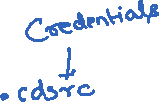 Credentials
↓
.cdsrc